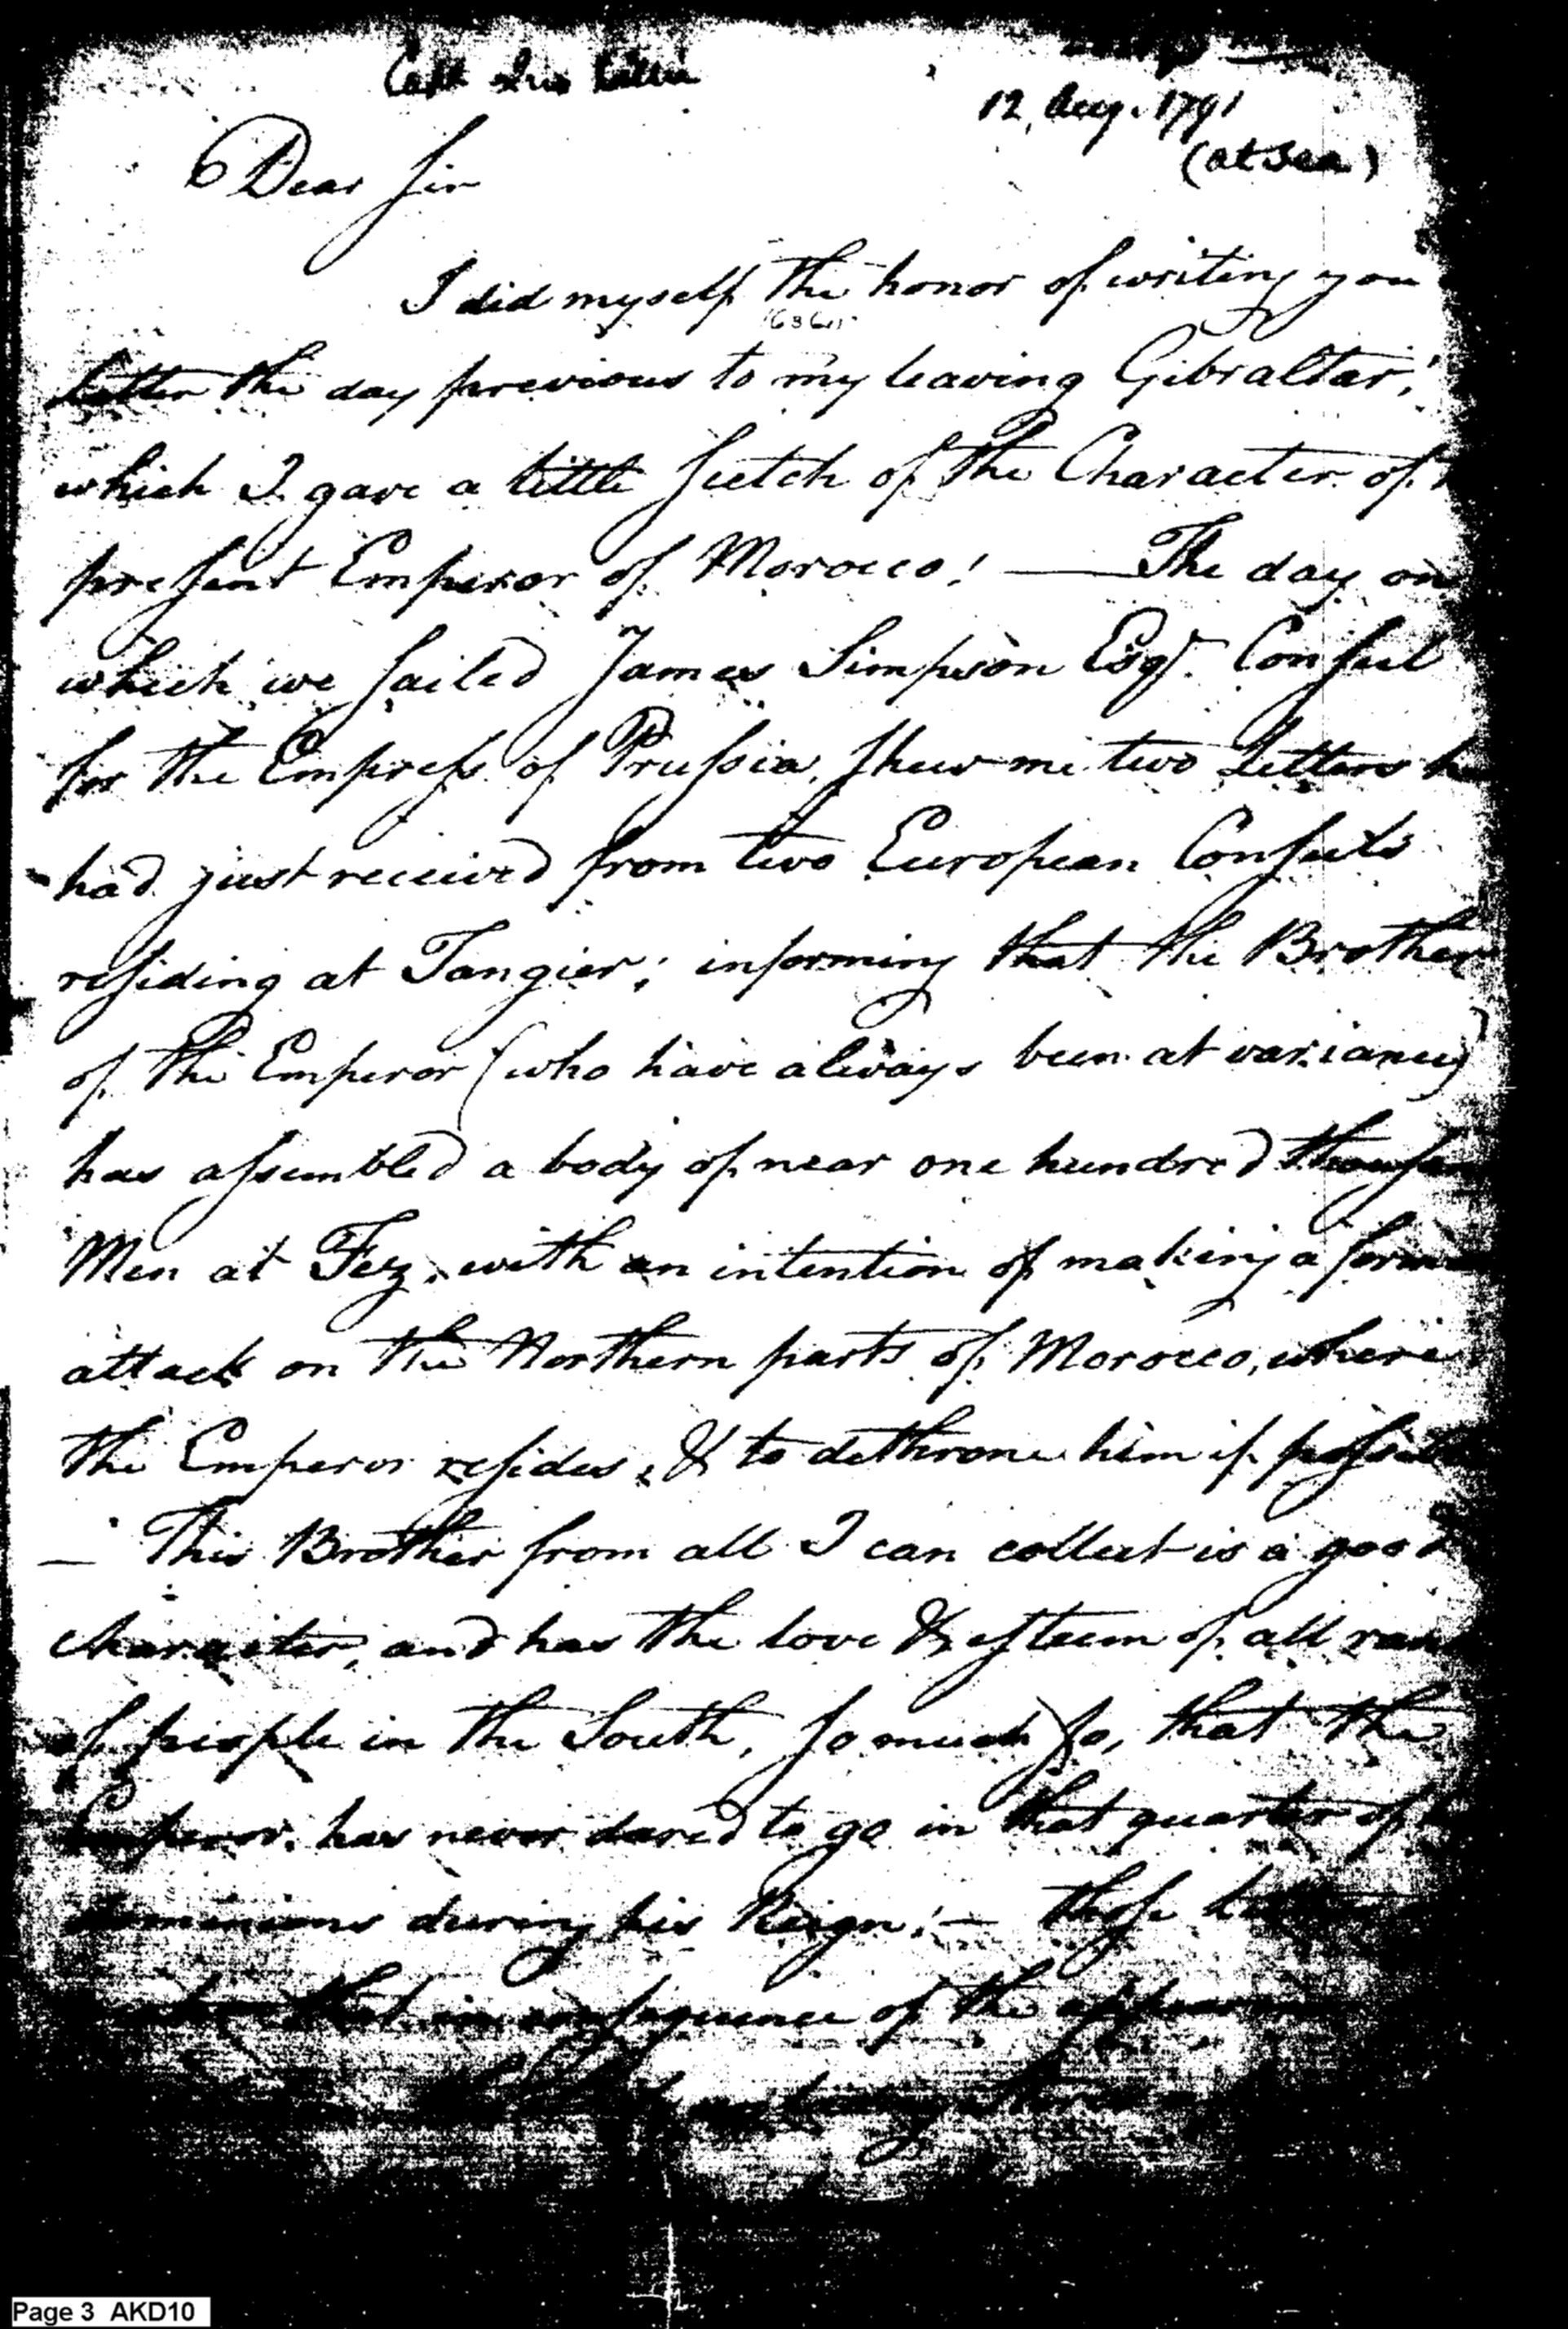 Capt
12, Aug. 1791
(at sea)
Dear Sir
I did myself the honor of writing you
letter the day previous to my leaving Gibraltar,
which I gave a little scetch of the Character of
present Emperor of Morocco! — The day on
which we sailed James Simpson Esqr. Consul
for the Empress of Prussia, shew me two Letters he
had just received from two European Consuls
residing at Tangier; informing that the Brother
of the Emperor (who have always been at variance)
has assembled a body of near one hundred thousan
Men at Fez, with an intention of making a form
attack on the Northern parts of Morocco, where
the Emperor resides, & to dethrone him if possible
— This Brother from all I can collect is a good
character, and has the love & esteem of all ran
of people in the South, so much so, that the
Emperor has never dared to go in that quarter of
dominions during his Reign! — those
that in consequence of the
Page 3 AKD10